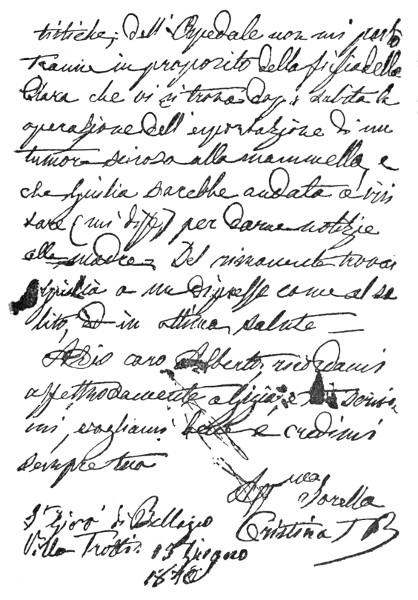 tistiche, dell'Ospedale non mi parlò
Tranne in proposito della figlia della
Clara che vi si trova dopo subita la
operazione dell'esportazione di un
tumore alla mammella, e
che Giulia sarebbe andata a visi
tare (mi disse) per darne notizie
alla madre. Del rimanente trovai
Giulia a un dipresso come al so
lito, ed in ottima salute =
Addio caro Alberto, ricordami
affettuosamente a
mi, vogliami bene e credimi
sempre tua
Aff.ma Sorella
Cristina T B
S. Giov. di Bellagio
Villa Trotti 13 Giugno